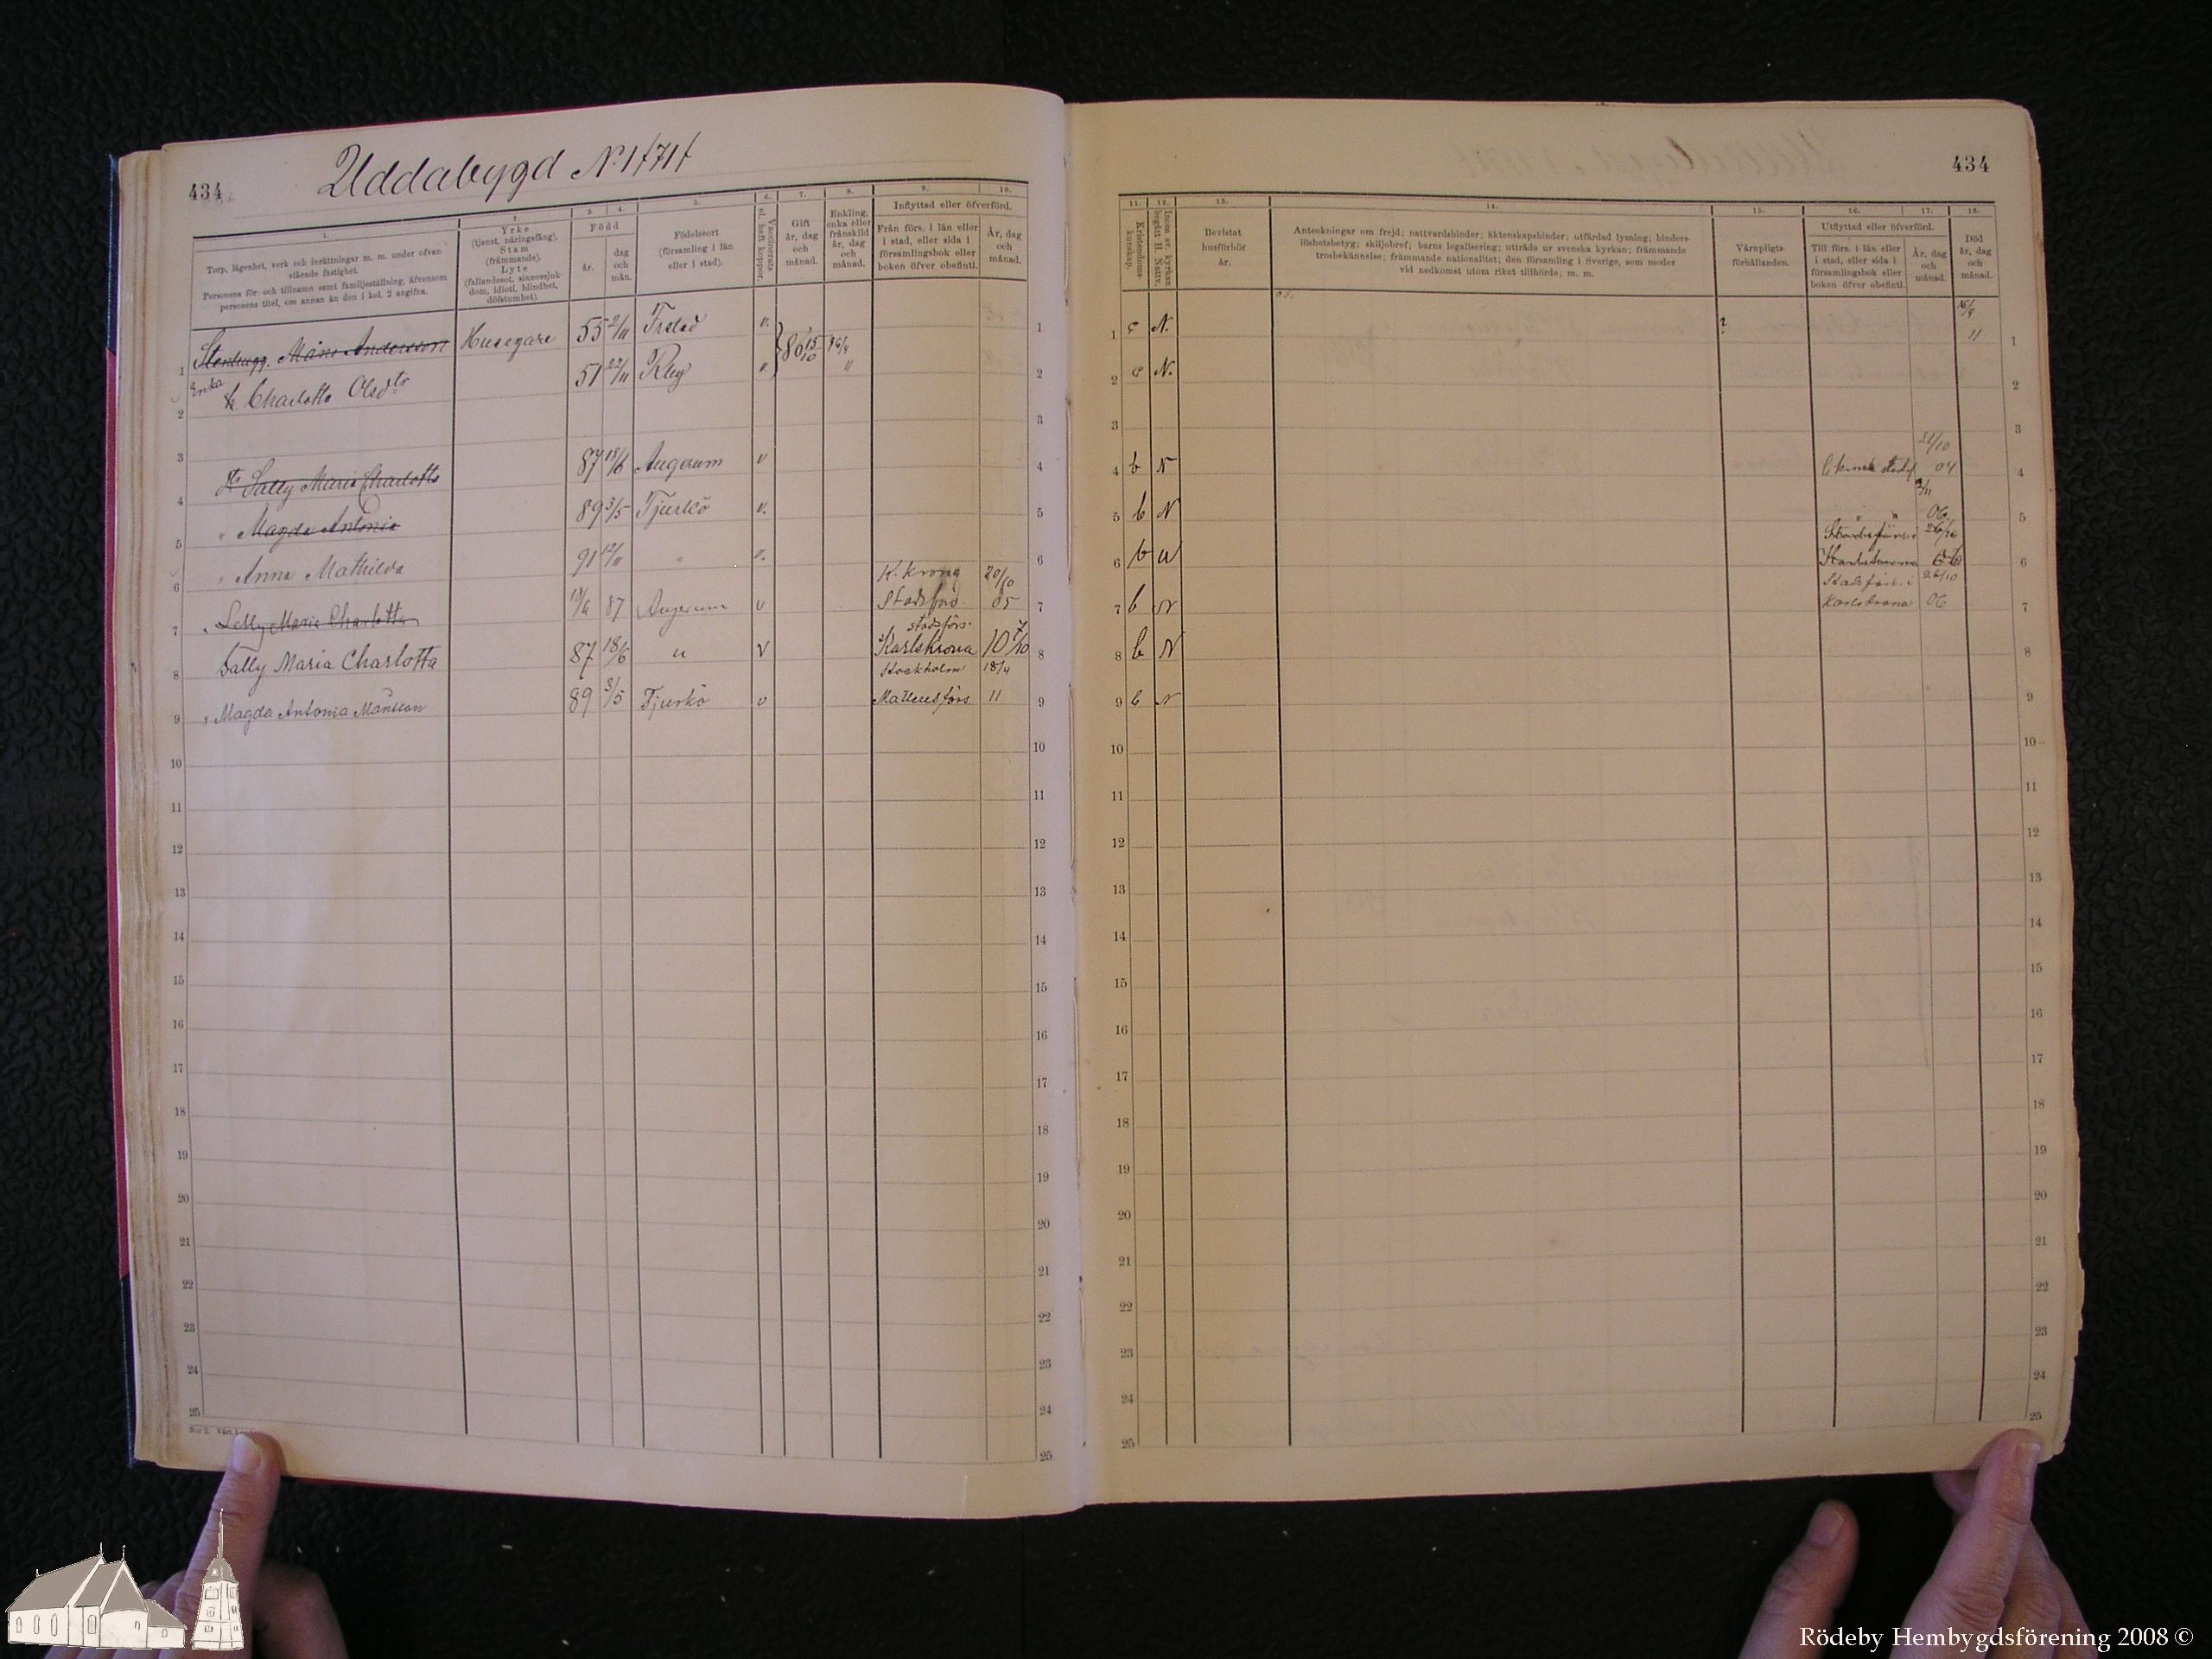 434
Uddabygd № 1 f 71 f
1.
2.
3.
4.
5.
6.
7.
8.
9.
10.
Torp, lägenhet, verk och inrättningar m. m. under ofvan-
stående fastighet.
Personens för- och tillnamn samt familjeställning, äfvensom
personens titel, om annan än den i kol. 2 angifna.
Yrke
(tjenst, näringsfång).
Stam
(främmande).
Lyte
(fallandesot, sinnessjuk-
dom, idioti, blindhet,
döfstumhet).
Född
år.
dag
och
mån.
Födelseort
(församling i län
eller i stad).
Vaccinerats
el. haft koppor.
Gift
år, dag
och
månad.
Enkling,
enka eller
frånskild
år, dag
och
månad.
Inflyttad eller öfverförd.
Från förs. i län eller
i stad, eller sida i
församlingsbok eller
boken öfver obefintl.
År, dag
och
månad.
1 Stenhugg. Måns Andersson Husegare 55 2/11 Fridlev v. 86 15/10
2 Enka h. Charlotta Olsdtr 51 22/11
3
4 dtr Sally Maria Charlotta 87 18/6 Augerum v
5 " Magda Antonia 89 3/5 Tjurkö v.
6 " Anna Mathilda 91 12/11 " v.
K.krona 20/10
7 Sally Maria Charlotta 18/6 87 Augerum v Stadsförs 05
stadsförs.
8 Sally Maria Charlotta 87 18/6 " v Karlskrona 10 7/10
Stockholm 18/4
9 Magda Antonia Månsson 89 3/5 Tjurkö v Matteus förs. 11
10
11
12
13
14
15
16
17
18
19
20
21
22
23
24
25
434
11.
12.
13.
14.
15.
16.
17.
18.
Kristendoms-
kunskap.
Inom sv. kyrkan
begått H. Nattv.
Bevistat
husförhör
år.
Anteckningar om frejd; nattvardshinder; äktenskapshinder; utfärdad lysning; hinders-
löshetsbetyg; skiljobref; barns legalisering; utträde ur svenska kyrkan; främmande
trosbekännelse; främmande nationalitet; den församling i Sverige, som moder
vid nedkomst utom riket tillhörde; m. m.
Värnpligts-
förhållanden.
Utflyttad eller öfverförd.
Till förs. i län eller
i stad, eller sida i
församlingsbok eller
boken öfver obefintl.
År, dag
och
månad.
Död
år, dag
och
månad.
1 c N. 2 11
2 c N.
3
21/10
4 b N 04
5 b N " " 06
Stadsförs. i 26/10
6 b u Karlskrona 06
Stadsförs. i 26/10
7 b N Karlskrona 06
8 b N
9 b N
10
11
12
13
14
15
16
17
18
19
20
21
22
23
24
25
Rödeby Hembygdsförening 2008 ©